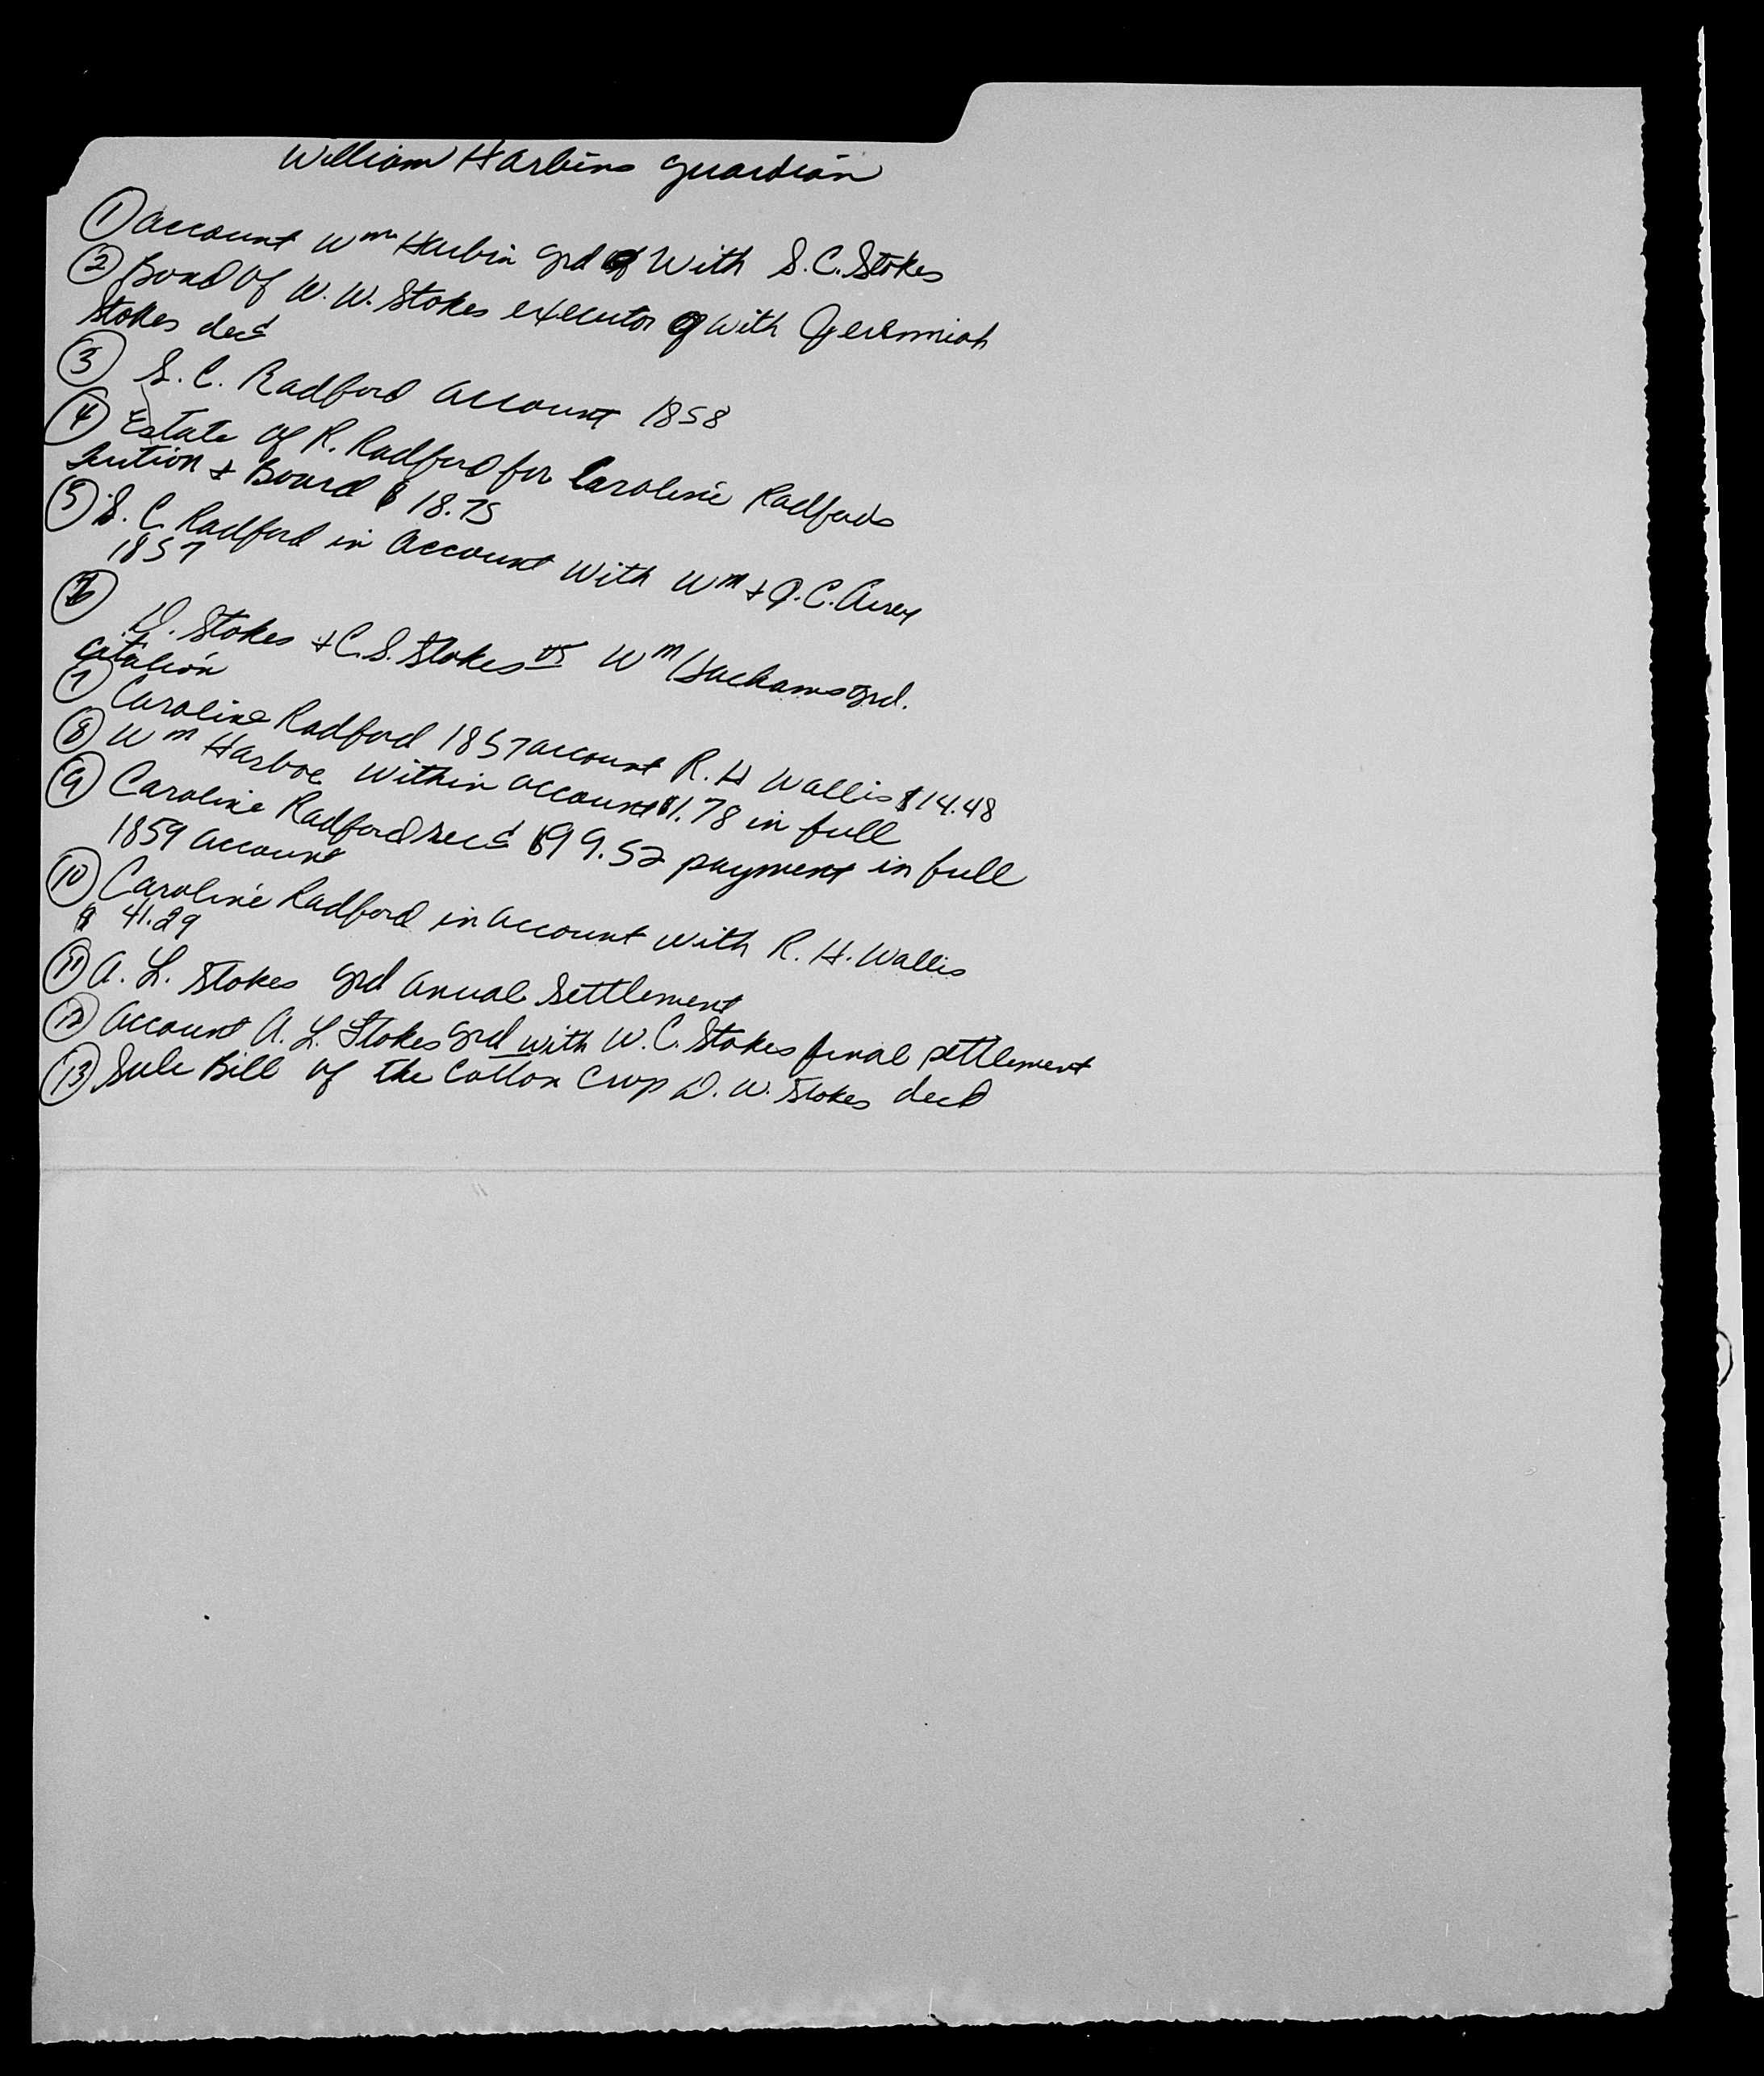 William Harbins guardian
① account Wm Harbin grd With S.C. Stokes
② Bond of W. W. Stokes executor with Jeremiah
Stokes decd
③ S. C. Radford account 1858
④ Estate of R. Radford for Caroline Radfords
Tuition & Board $ 18.75
⑤ S. C. Radford in Account With Wm &
1857
⑥
D. Stokes & C. S. Stokes vs Wm grd.
Citation
⑦ Caroline Radford 1857 account R. H Wallis $14.48
⑧ Wm Within account $1.78 in full
⑨ Caroline Radford recd $99.52 payment in full
1859 account
⑩ Caroline Radford in account with R. H. Wallis
$ 41.29
⑪ A. L. Stokes grd anual Settlement
⑫ Account A. L. Stokes grd with W. C. Stokes final settlement
⑬ Sale Bill of the Cotton Crop D. W. Stokes decd